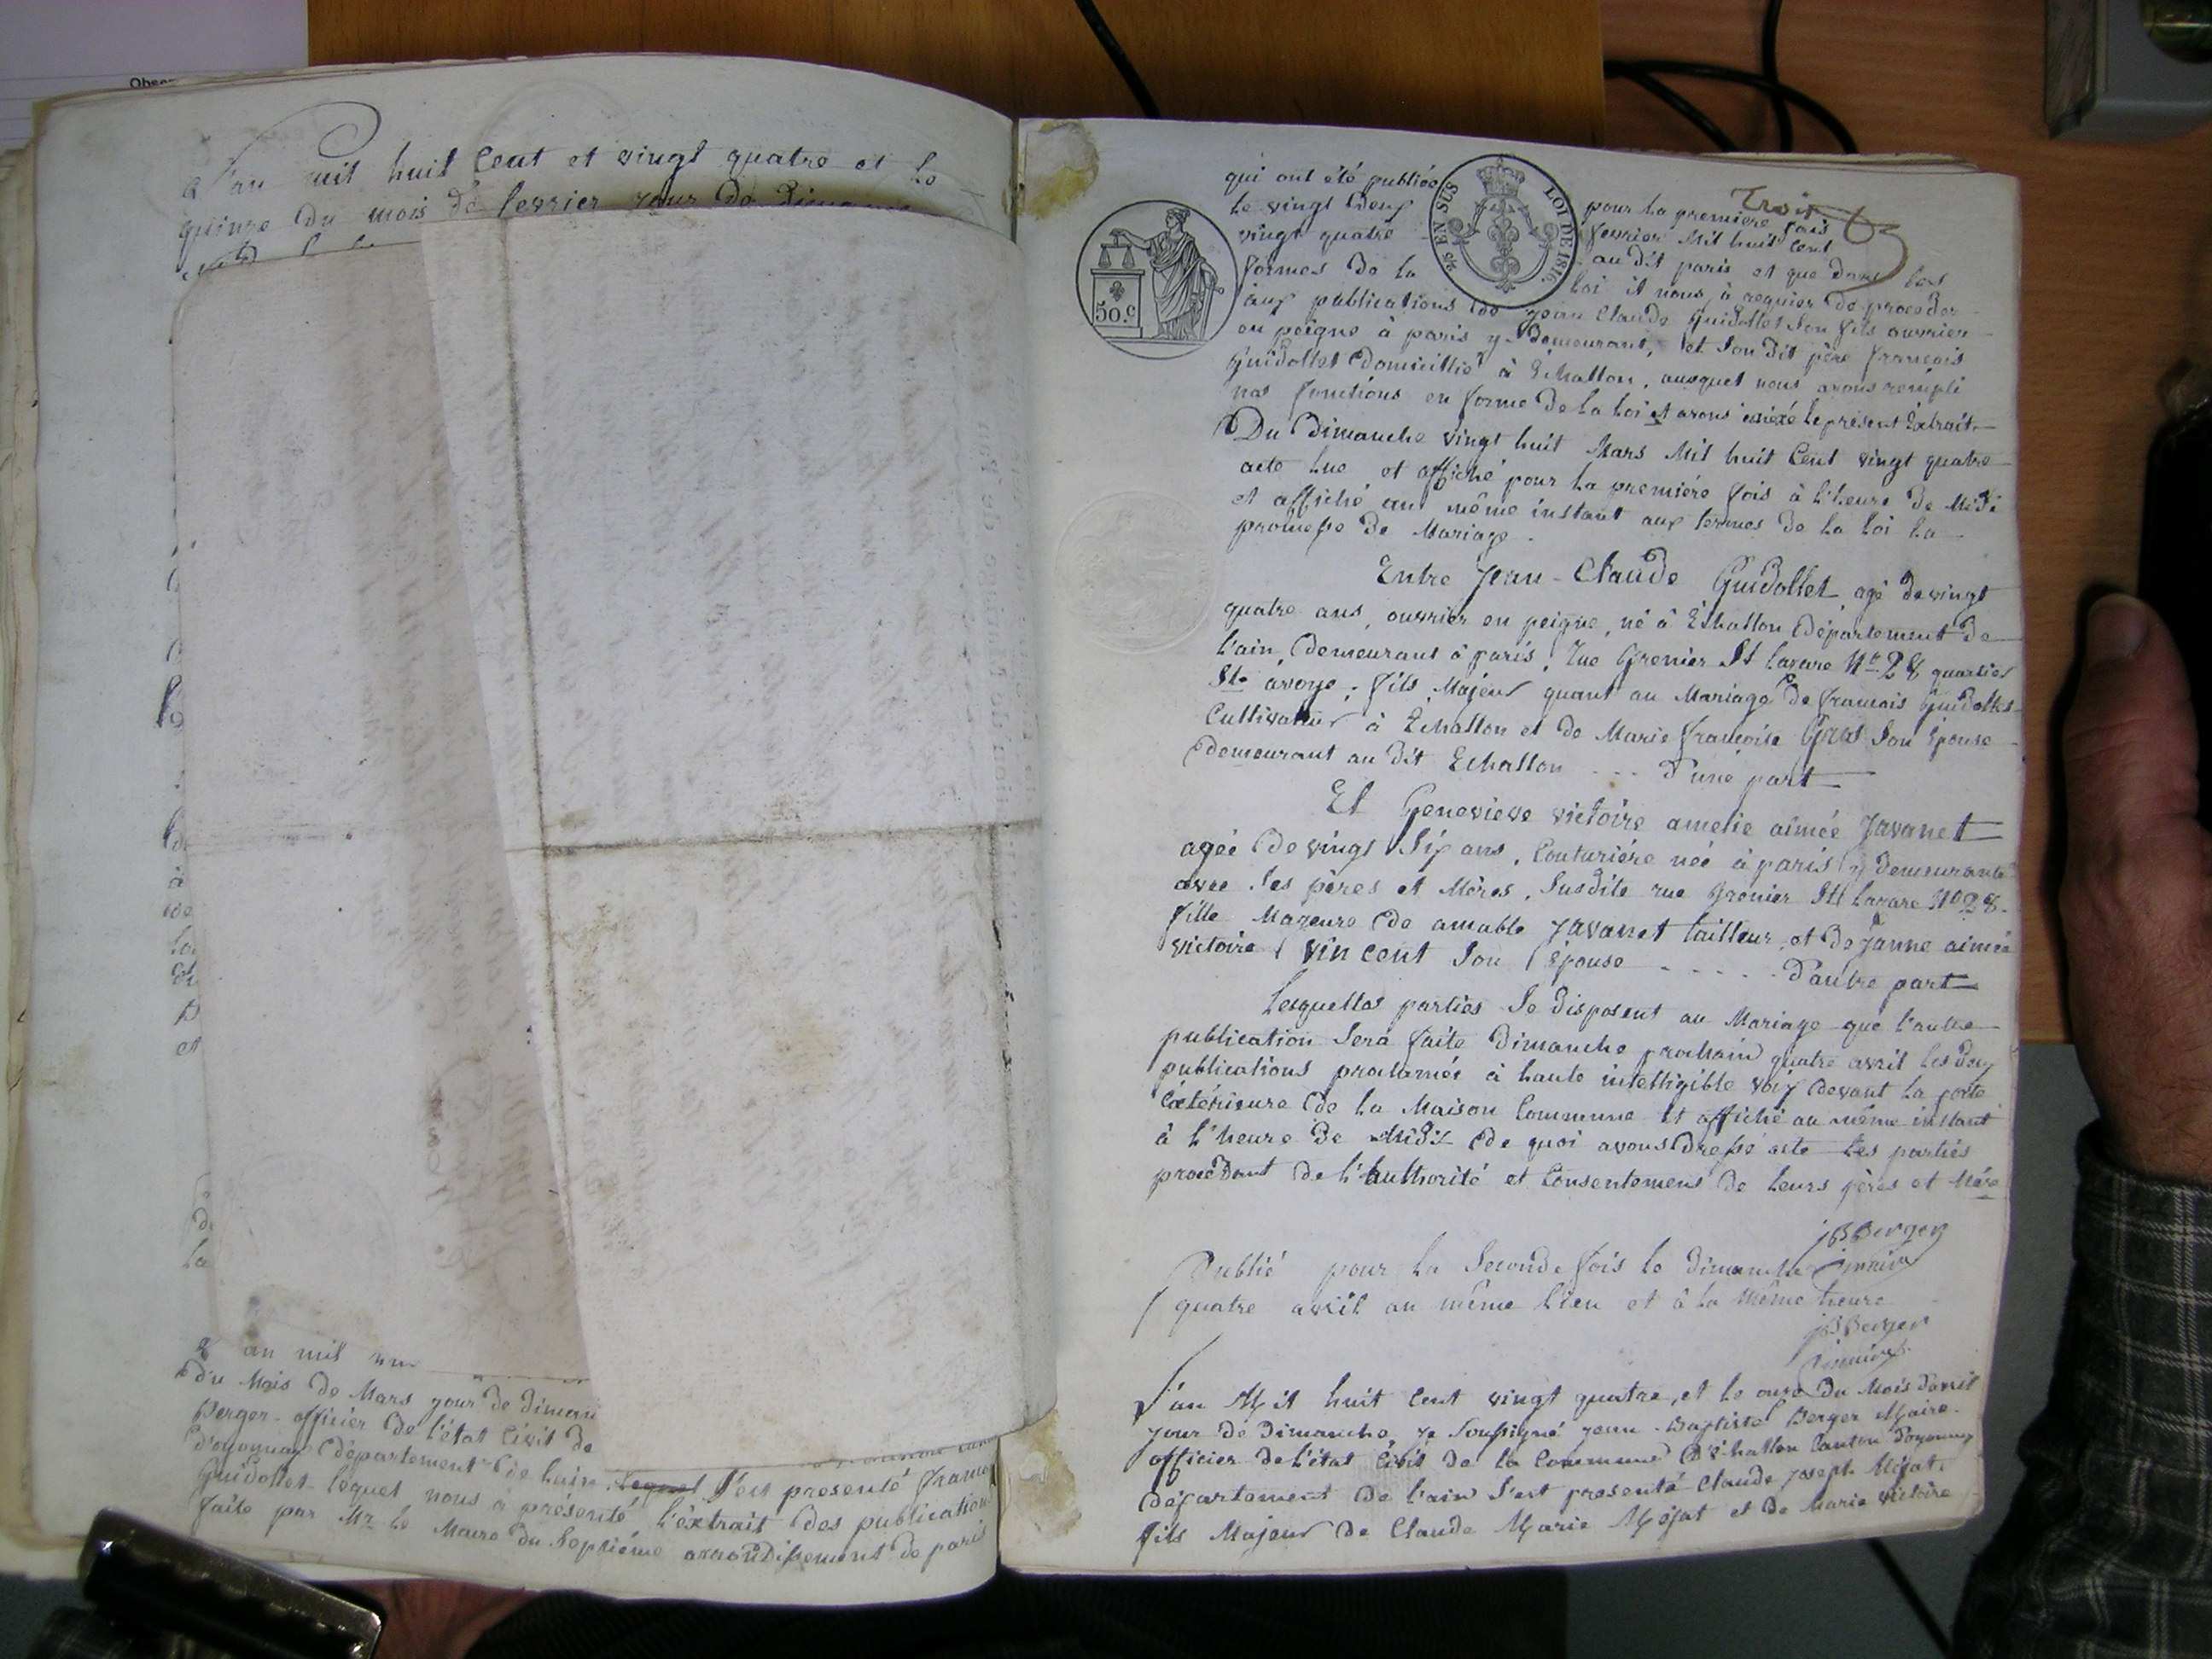 Obser
L'an mil huit Cent et vingt quatre et le
quinze du mois de fevrier jour de Dimanche
an mil
du Mois de Mars jour de Diman
Berger officier de l'état Civil de
d'oyonnax département de Lain lequel s'est presenté Francois
Guidollet lequel nous à présenté l'extrait des publications
faite par Mr le Maire du Septiéme arrondissement de paris
Trois
qui ont été publiée pour la premiere fois
le vingt Deux fevrier Mil huit Cent
vingt quatre au dit paris et que dans les
formes de la loi il nous à requier de proceder
aux publications de jean Claude Guidollet son fils ouvrier
en peigne à paris y demeurant, et son dit père francois
Guidollet Domicillié à Echallon, auxquel nous avons rempli
nos fonctions en forme de la loi et avons anéxé le présent Extrait
50.c
EN SUS LOI DE 1816.
Du Dimanche vingt huit Mars Mil huit Cent vingt quatre
acte lue et affiché pour la premiére fois à l'heure de Midi
et affiché au même instant aux termes de la loi la
promesse de Mariage.
Entre Jean-Claude Guidollet agé de vingt
quatre ans, ouvrier en peigne, né à Echallon Département de
l'ain, demeurant à paris, rue Grenier St lazare No 28 quartier
Ste avoye, fils Majeur quant au Mariage de francois Guidollet
Cultivateur à Echallon et de Marie francoise Gras son Epouse
demeurant au dit Echallon - - - d'une part
Et Genevieve victoire amelie aimée Javanet
agée de vingt Six ans, Couturiére née à paris y demeurante
avec ses pères et Mères, susdite rue Grenier St lazare No 28.
fille Mazeure de amable Javanet tailleur, et de Janne aimée
victoire Vincent son Epouse - - - - - d'autre part
Lesquelles parties se disposent au Mariage que l'autre
publication sera faite Dimanche prochain quatre avril les Deux
publications proclamée à haute intelligible voix devant la porte
Extérieure de la Maison Commune et affiché au même instant
à l'heure de Midi de quoi avons Dressé acte Les parties
procédant de l'authorité et Consentemens de leurs pères et Mère
jB Berger
maire
Publié pour la Seconde fois le Dimanche
quatre avril au même lieu et à la même heure
jB Berger
maire
L'an Mil huit Cent vingt quatre, et le onze Du Mois d'avril
jour de Dimanche, je Soussigné jean-Baptiste Berger Maire
officier de l'état Civil de la Commune d'Echallon Canton Doyonnax
département de l'ain s'est presenté Claude Joseph Mojat.
fils Majeur de Claude Marie Mojat et de Marie victoire